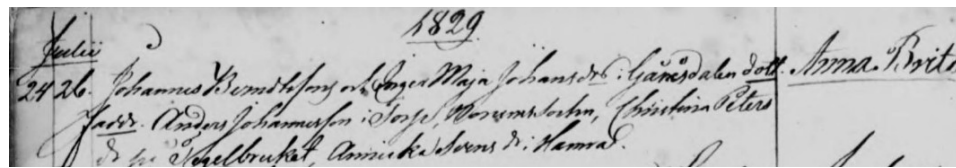 1829
Julii
24 26. Johannes Berndtssons och Ingea Maja Johansdrs i Gärdesdalen dott. Anna Brita
Faddr. Anders Johannesson i Torp, Christina Peters
dr på Tegelbruket, Annicka Svens dr i Hamra.